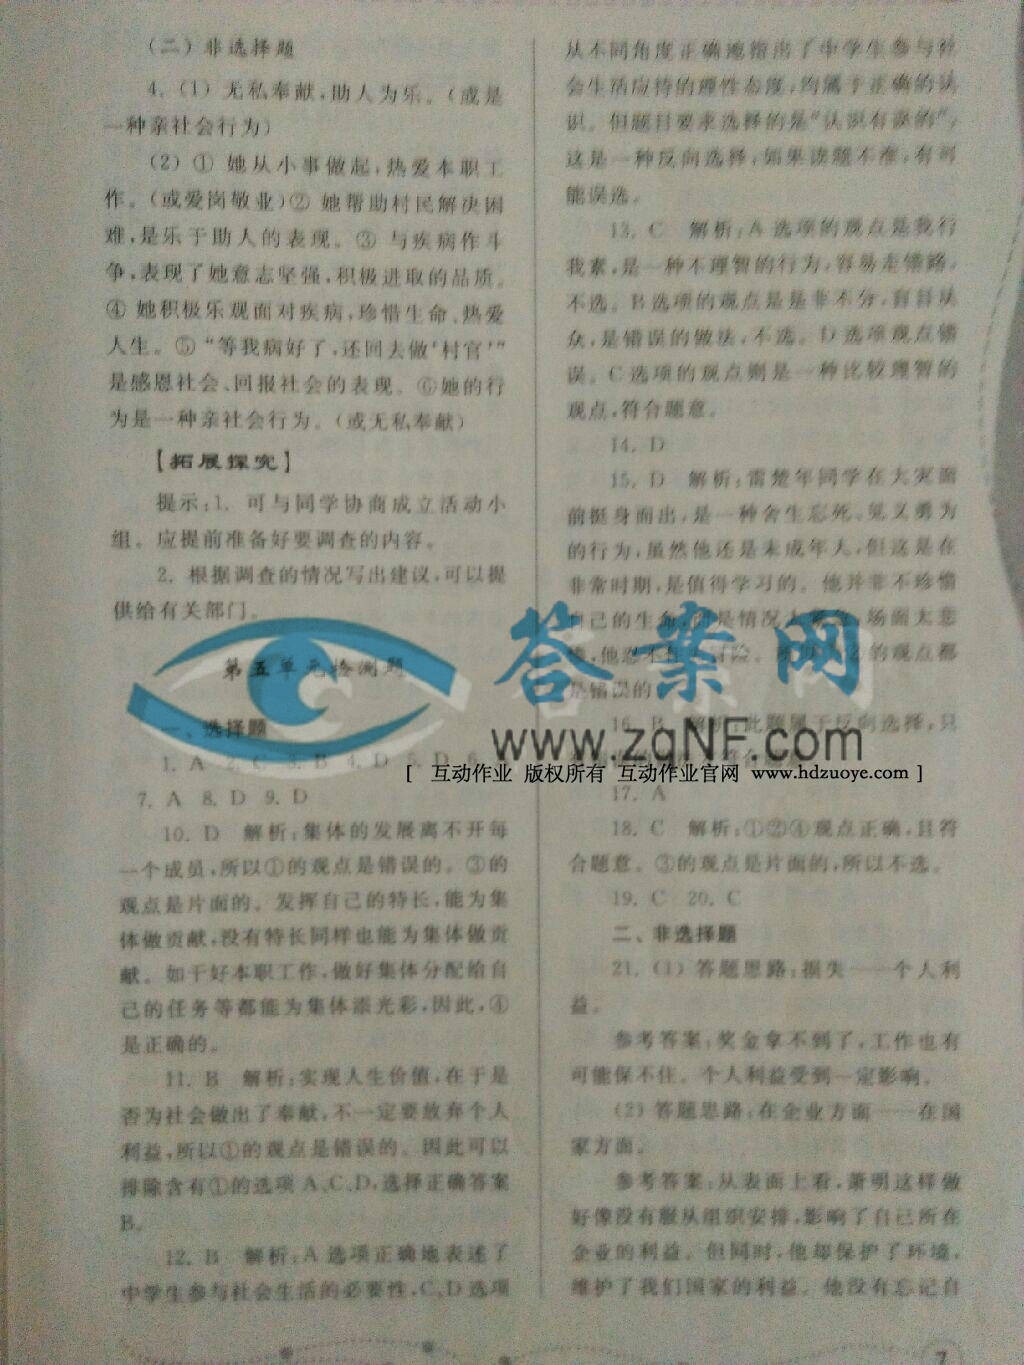 (二) 非选择题
4. (1) 无私奉献,助人为乐。(或是
一种亲社会行为)
(2) ① 她从小事做起,热爱本职工
作。(或爱岗敬业)② 她帮助村民解决困
难,是乐于助人的表现。③ 与疾病作斗
争,表现了她意志坚强,积极进取的品质。
④ 她积极乐观面对疾病,珍惜生命、热爱
人生。⑤ “等我病好了,还回去做‘村官’”
是感恩社会、回报社会的表现。⑥她的行
为是一种亲社会行为。(或无私奉献)
【拓展探究】
提示:1. 可与同学协商成立活动小
组。应提前准备好要调查的内容。
2. 根据调查的情况写出建议,可以提
供给有关部门。
第五单元检测题
一、选择题
1. A 2. C 3. B 4. D 5. D 6.
7. A 8. D 9. D
10. D 解析:集体的发展离不开每
一个成员,所以①的观点是错误的。③的
观点是片面的。发挥自己的特长,能为集
体做贡献,没有特长同样也能为集体做贡
献。如干好本职工作,做好集体分配给自
己的任务等都能为集体添光彩,因此,④
是正确的。
11. B 解析:实现人生价值,在于是
否为社会做出了奉献,不一定要放弃个人
利益,所以①的观点是错误的。因此可以
排除含有①的选项 A、C、D,选择正确答案
B。
12. B 解析:A 选项正确地表述了
中学生参与社会生活的必要性,C、D 选项
从不同角度正确地指出了中学生参与社
会生活应持的理性态度,均属于正确的认
识。但题目要求选择的是“认识有误的”,
这是一种反向选择,如果读题不准,有可
能误选。
13. C 解析:A 选项的观点是我行
我素,是一种不理智的行为,容易走错路。
不选。B 选项的观点是是非不分,盲目从
众,是错误的做法,不选。D 选项观点错
误。C 选项的观点则是一种比较理智的
观点,符合题意。
14. D
15. D 解析:雷楚年同学在大灾面
前挺身而出,是一种舍生忘死、见义勇为
的行为,虽然他还是未成年人,但这是在
非常时期,是值得学习的。他并非不珍惜
自己的生命,而是情况太 ,场面太悲
,他忍不住 冒险。所以 的观点都
是错误的
16. B 解析:此题属于反向选择,只
17. A
18. C 解析:①②④观点正确,且符
合题意。③的观点是片面的,所以不选。
19. C 20. C
二、非选择题
21. (1) 答题思路:损失——个人利
益。
参考答案:奖金拿不到了,工作也有
可能保不住。个人利益受到一定影响。
(2) 答题思路:在企业方面——在国
家方面。
参考答案:从表面上看,萧明这样做
好像没有服从组织安排,影响了自己所在
企业的利益。但同时,他却保护了环境,
维护了我们国家的利益。他没有忘记自
7
答案网
www.zqNF.com
[ 互动作业 版权所有 互动作业官网 www.hdzuoye.com ]